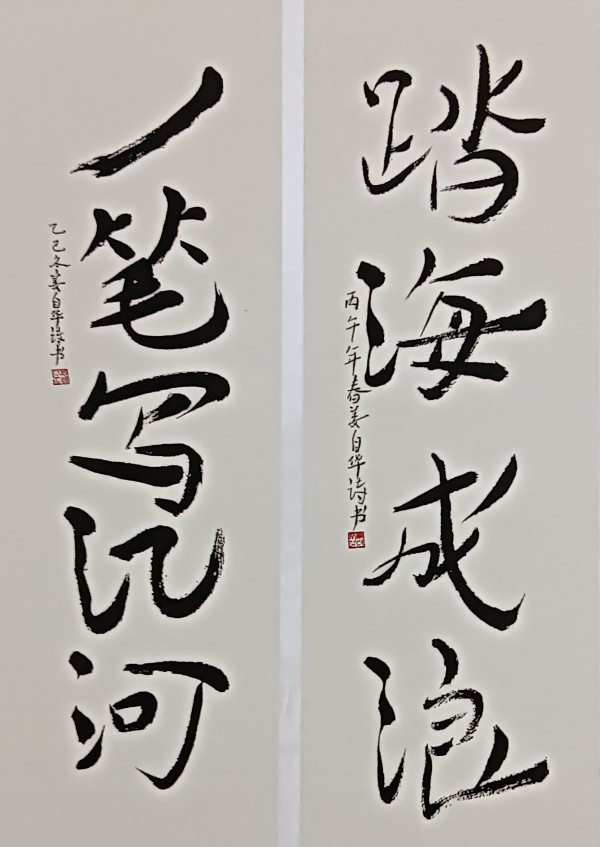 踏海成浪
丙午年春姜自华诗书
一笔写江河
乙巳冬姜自华诗书